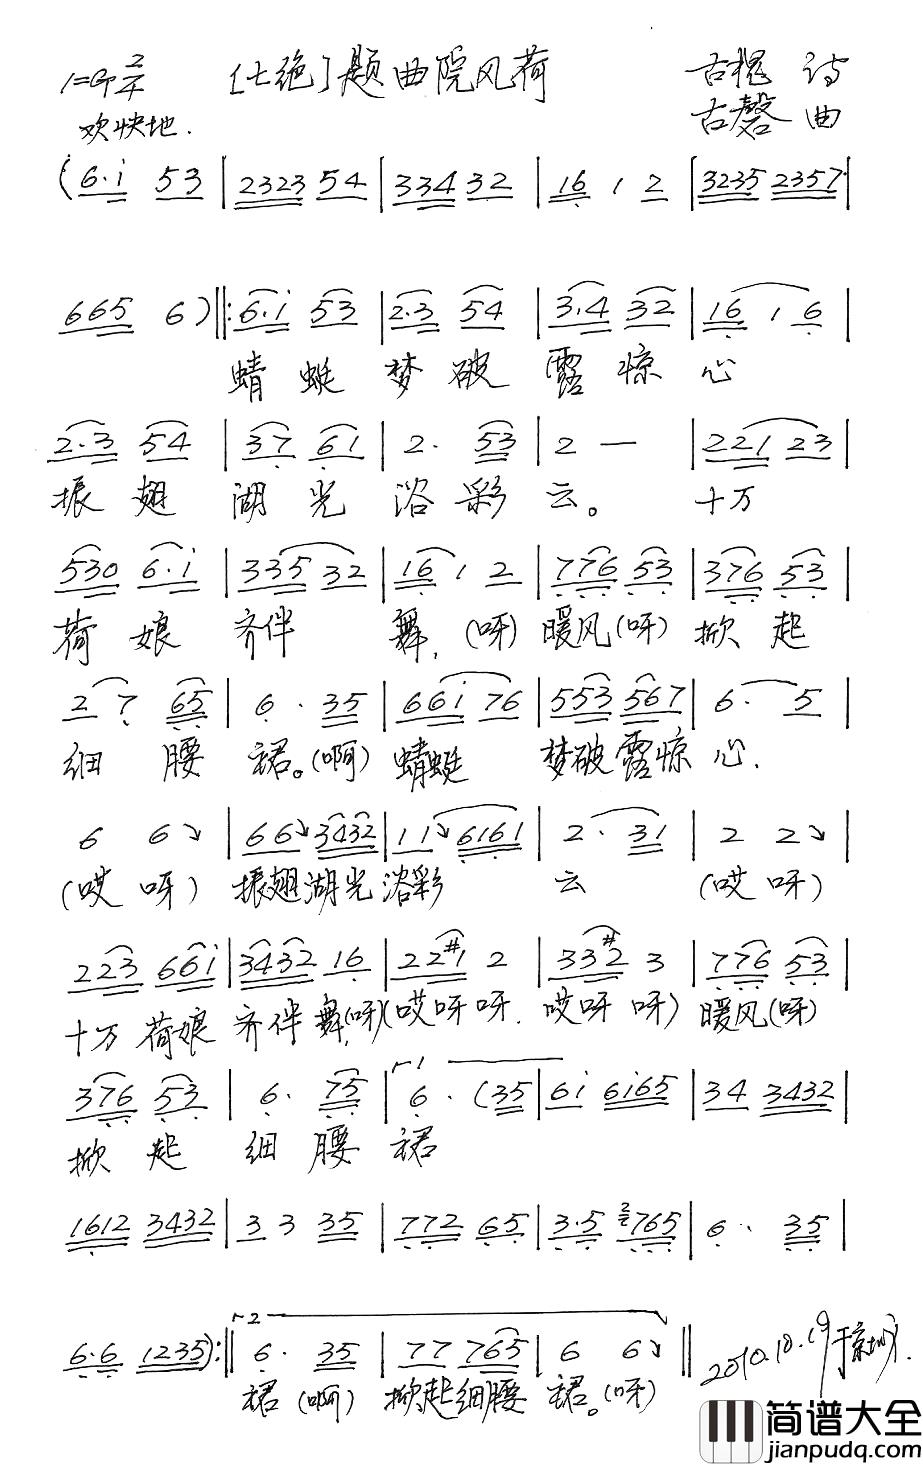 1=G 2/4 [七绝]题曲院风荷 古槐 诗
欢快地. 古磬 曲
(6·i 53 | 2323 54 | 334 32 | 16 1 2 | 3235 2357 |
665 6) ‖: 6·i 53 | 2·3 54 | 3·4 32 | 16 1 6 |
蜻蜓 梦破 露惊 心
2·3 54 | 37 61 | 2· 53 | 2 — | 221 23 |
振翅 湖光 浴彩 云。 十万
530 6·i | 335 32 | 16 1 2 | 776 53 | 376 53 |
荷娘 齐伴 舞,(呀) 暖风(呀) 掀起
2 7 65 | 6· 35 | 66i 76 | 553 567 | 6· 5 |
细腰 裙。(啊) 蜻蜓 梦破露惊 心.
6 6↘ | 66↘ 3432 | 11↘ 6161 | 2· 31 | 2 2↘ |
(哎 呀) 振翅湖光浴彩 云 (哎 呀)
223 66i | 3432 16 | 22#1 2 | 33#2 3 | 776 53 |
十万荷娘 齐伴舞,(呀)(哎呀呀. 哎呀呀) 暖风(呀)
376 53 | 6· 75 | 1 6· (35 | 6i 6i65 | 34 3432 |
掀起 细腰 裙
1612 3432 | 33 35 | 772 65 | 3·5 2765 | 6· 35 |
6·6 1235) :‖ 2 6· 35 | 77 765 | 6 6↘ ‖ 2010.10.19于京城.
裙(啊) 掀起细腰 裙。(呀)
简谱大全
jianpudq.com